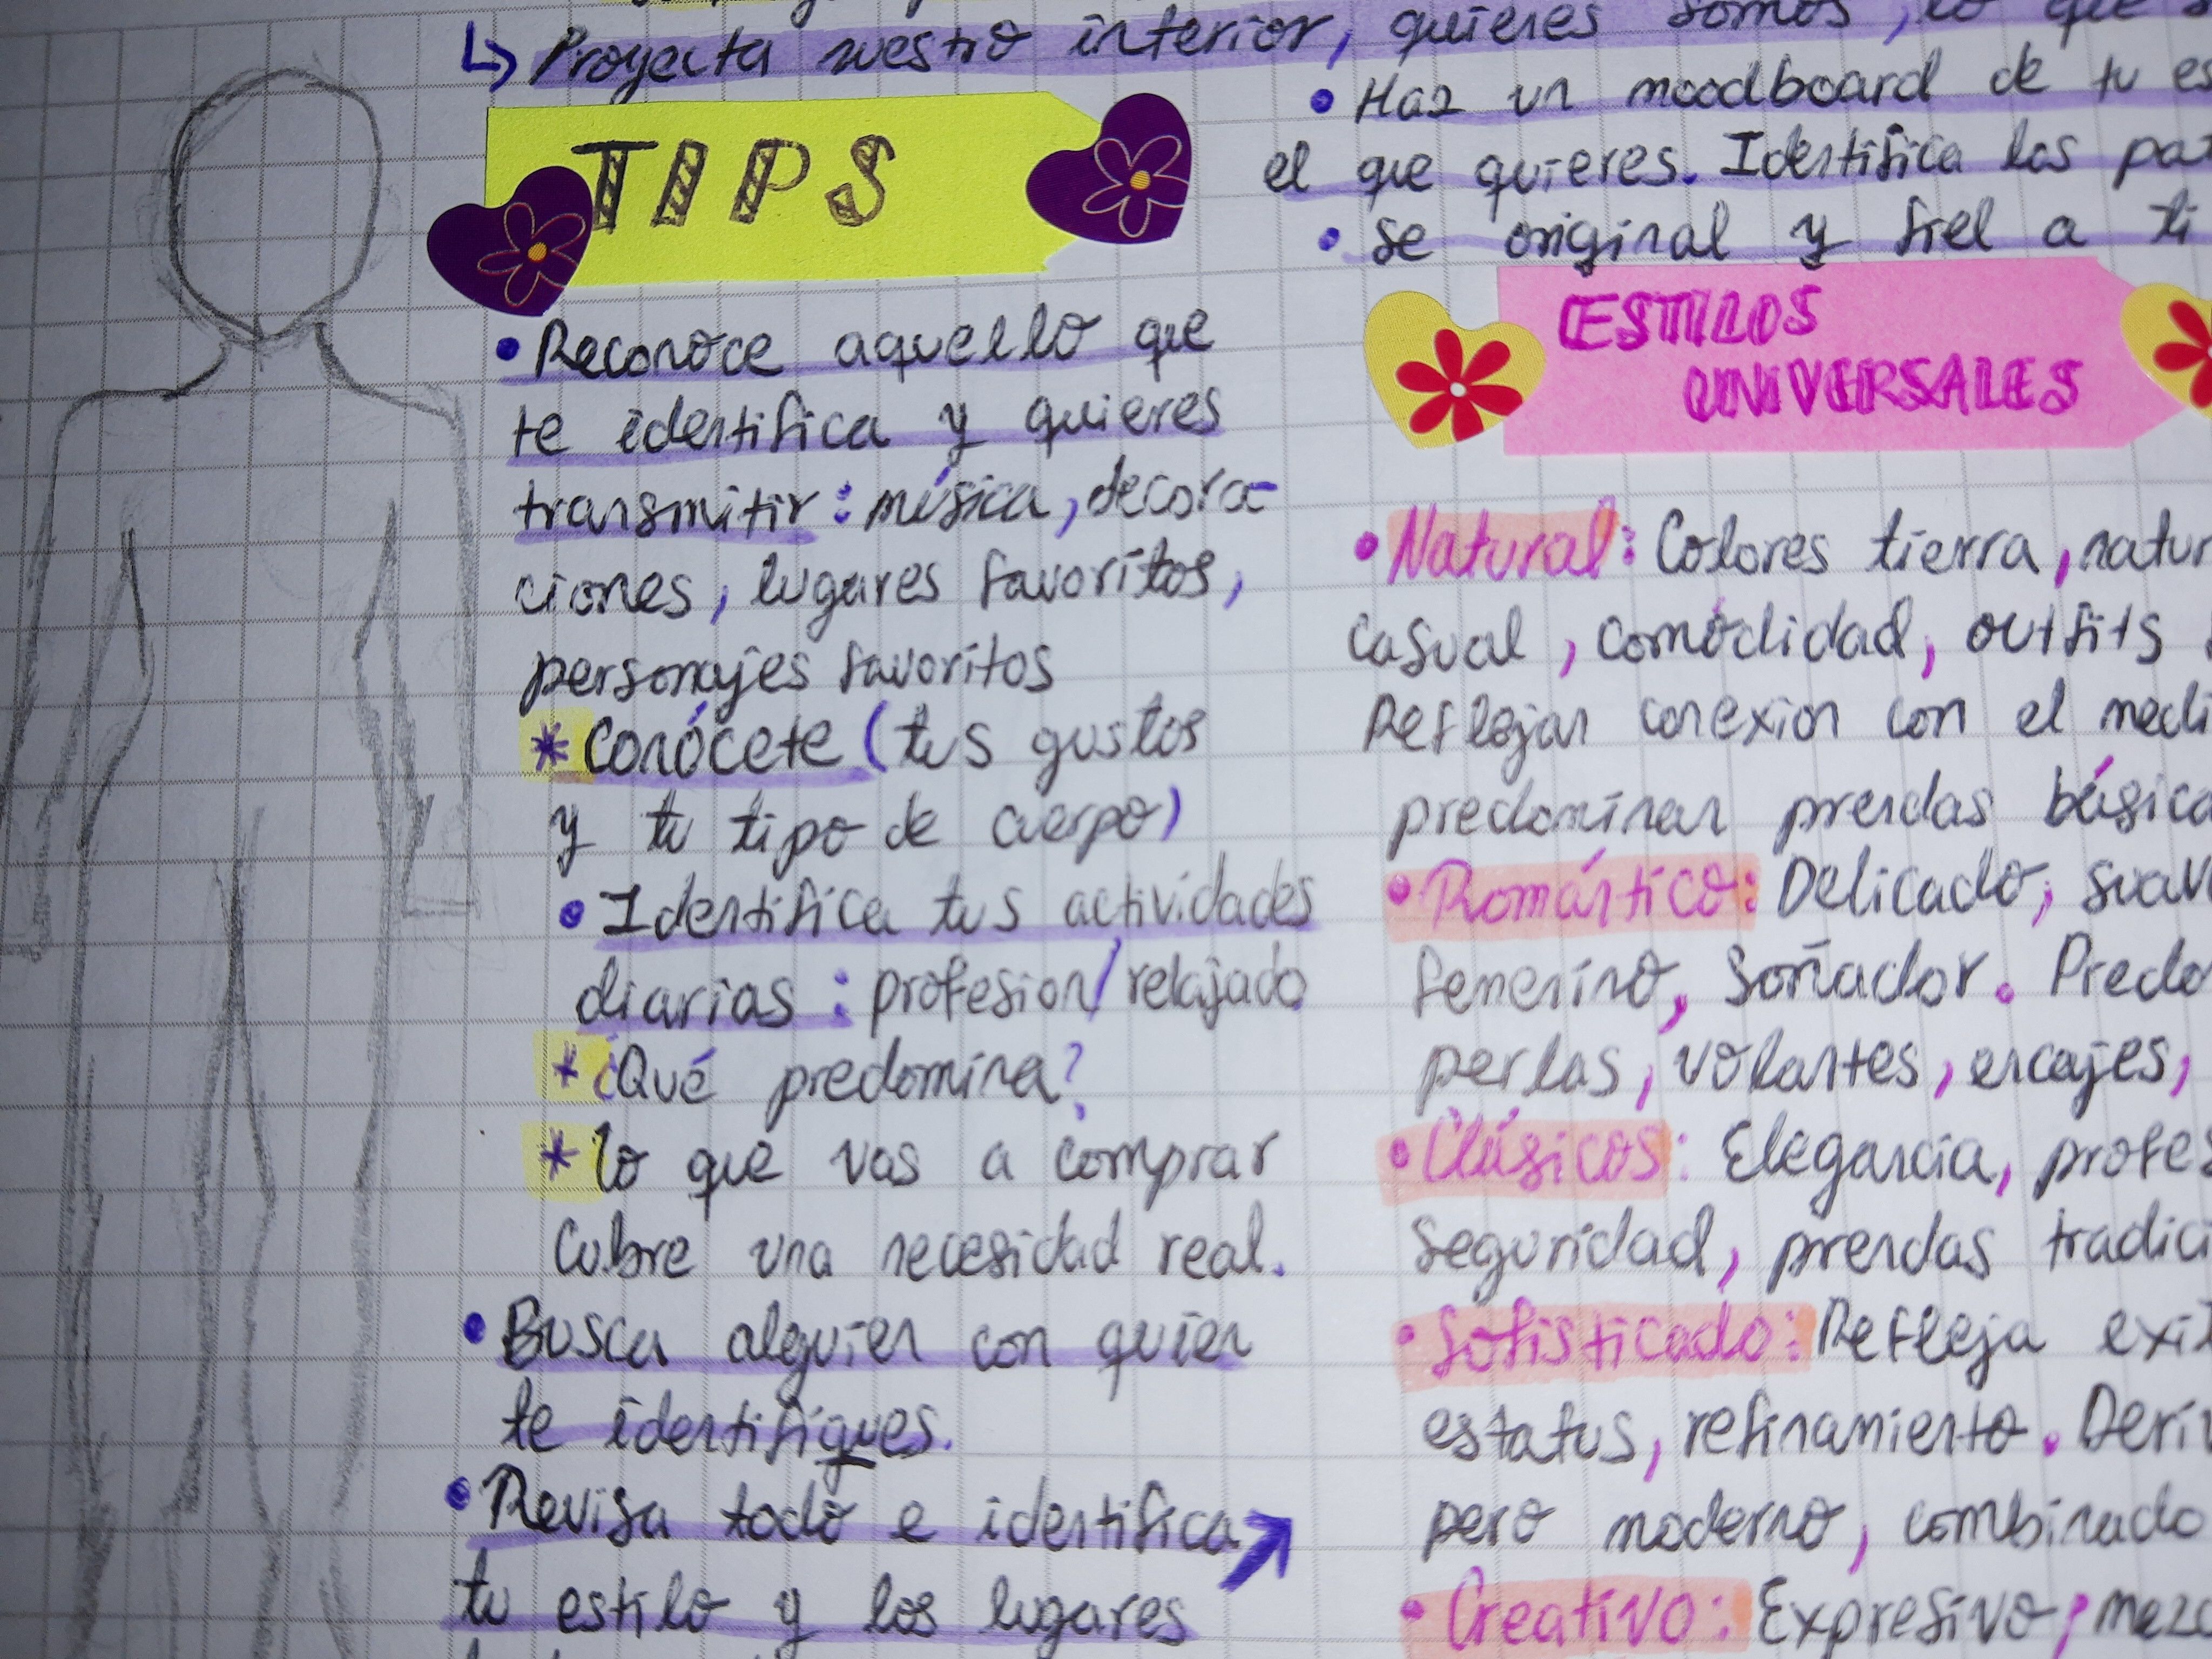 ↳ Proyecta nuestro interior, quienes somos, lo que
TIPS
• Reconoce aquello que
te identifica y quieres
transmitir: música, decora-
ciones, lugares favoritos,
personajes favoritos
* Conócete (tus gustos
y tu tipo de cuerpo)
• Identifica tus actividades
diarias: profesion/relajado
* ¿Qué predomina?
* lo que vas a comprar
Cubre una necesidad real.
• Busca alguien con quien
te identifiques.
• Revisa todo e identifica
tu estilo y los lugares
• Haz un moodboard de tu es
el que quieres. Identifica los pat
• Se original y fiel a ti
ESTILOS
UNIVERSALES
• Natural: Colores tierra, natur
casual, comodidad, outfits
Reflejan conexion con el medi
predominan prendas básica
• Romántico: Delicado, suav
femenino, Soñador. Predo
perlas, volantes, encajes,
• Clásicos: Elegancia, profes
Seguridad, prendas tradici
• Sofisticado: Refleja exi
estatus, refinamiento. Deriv
pero moderno, combinado
• Creativo: Expresivo, mezc